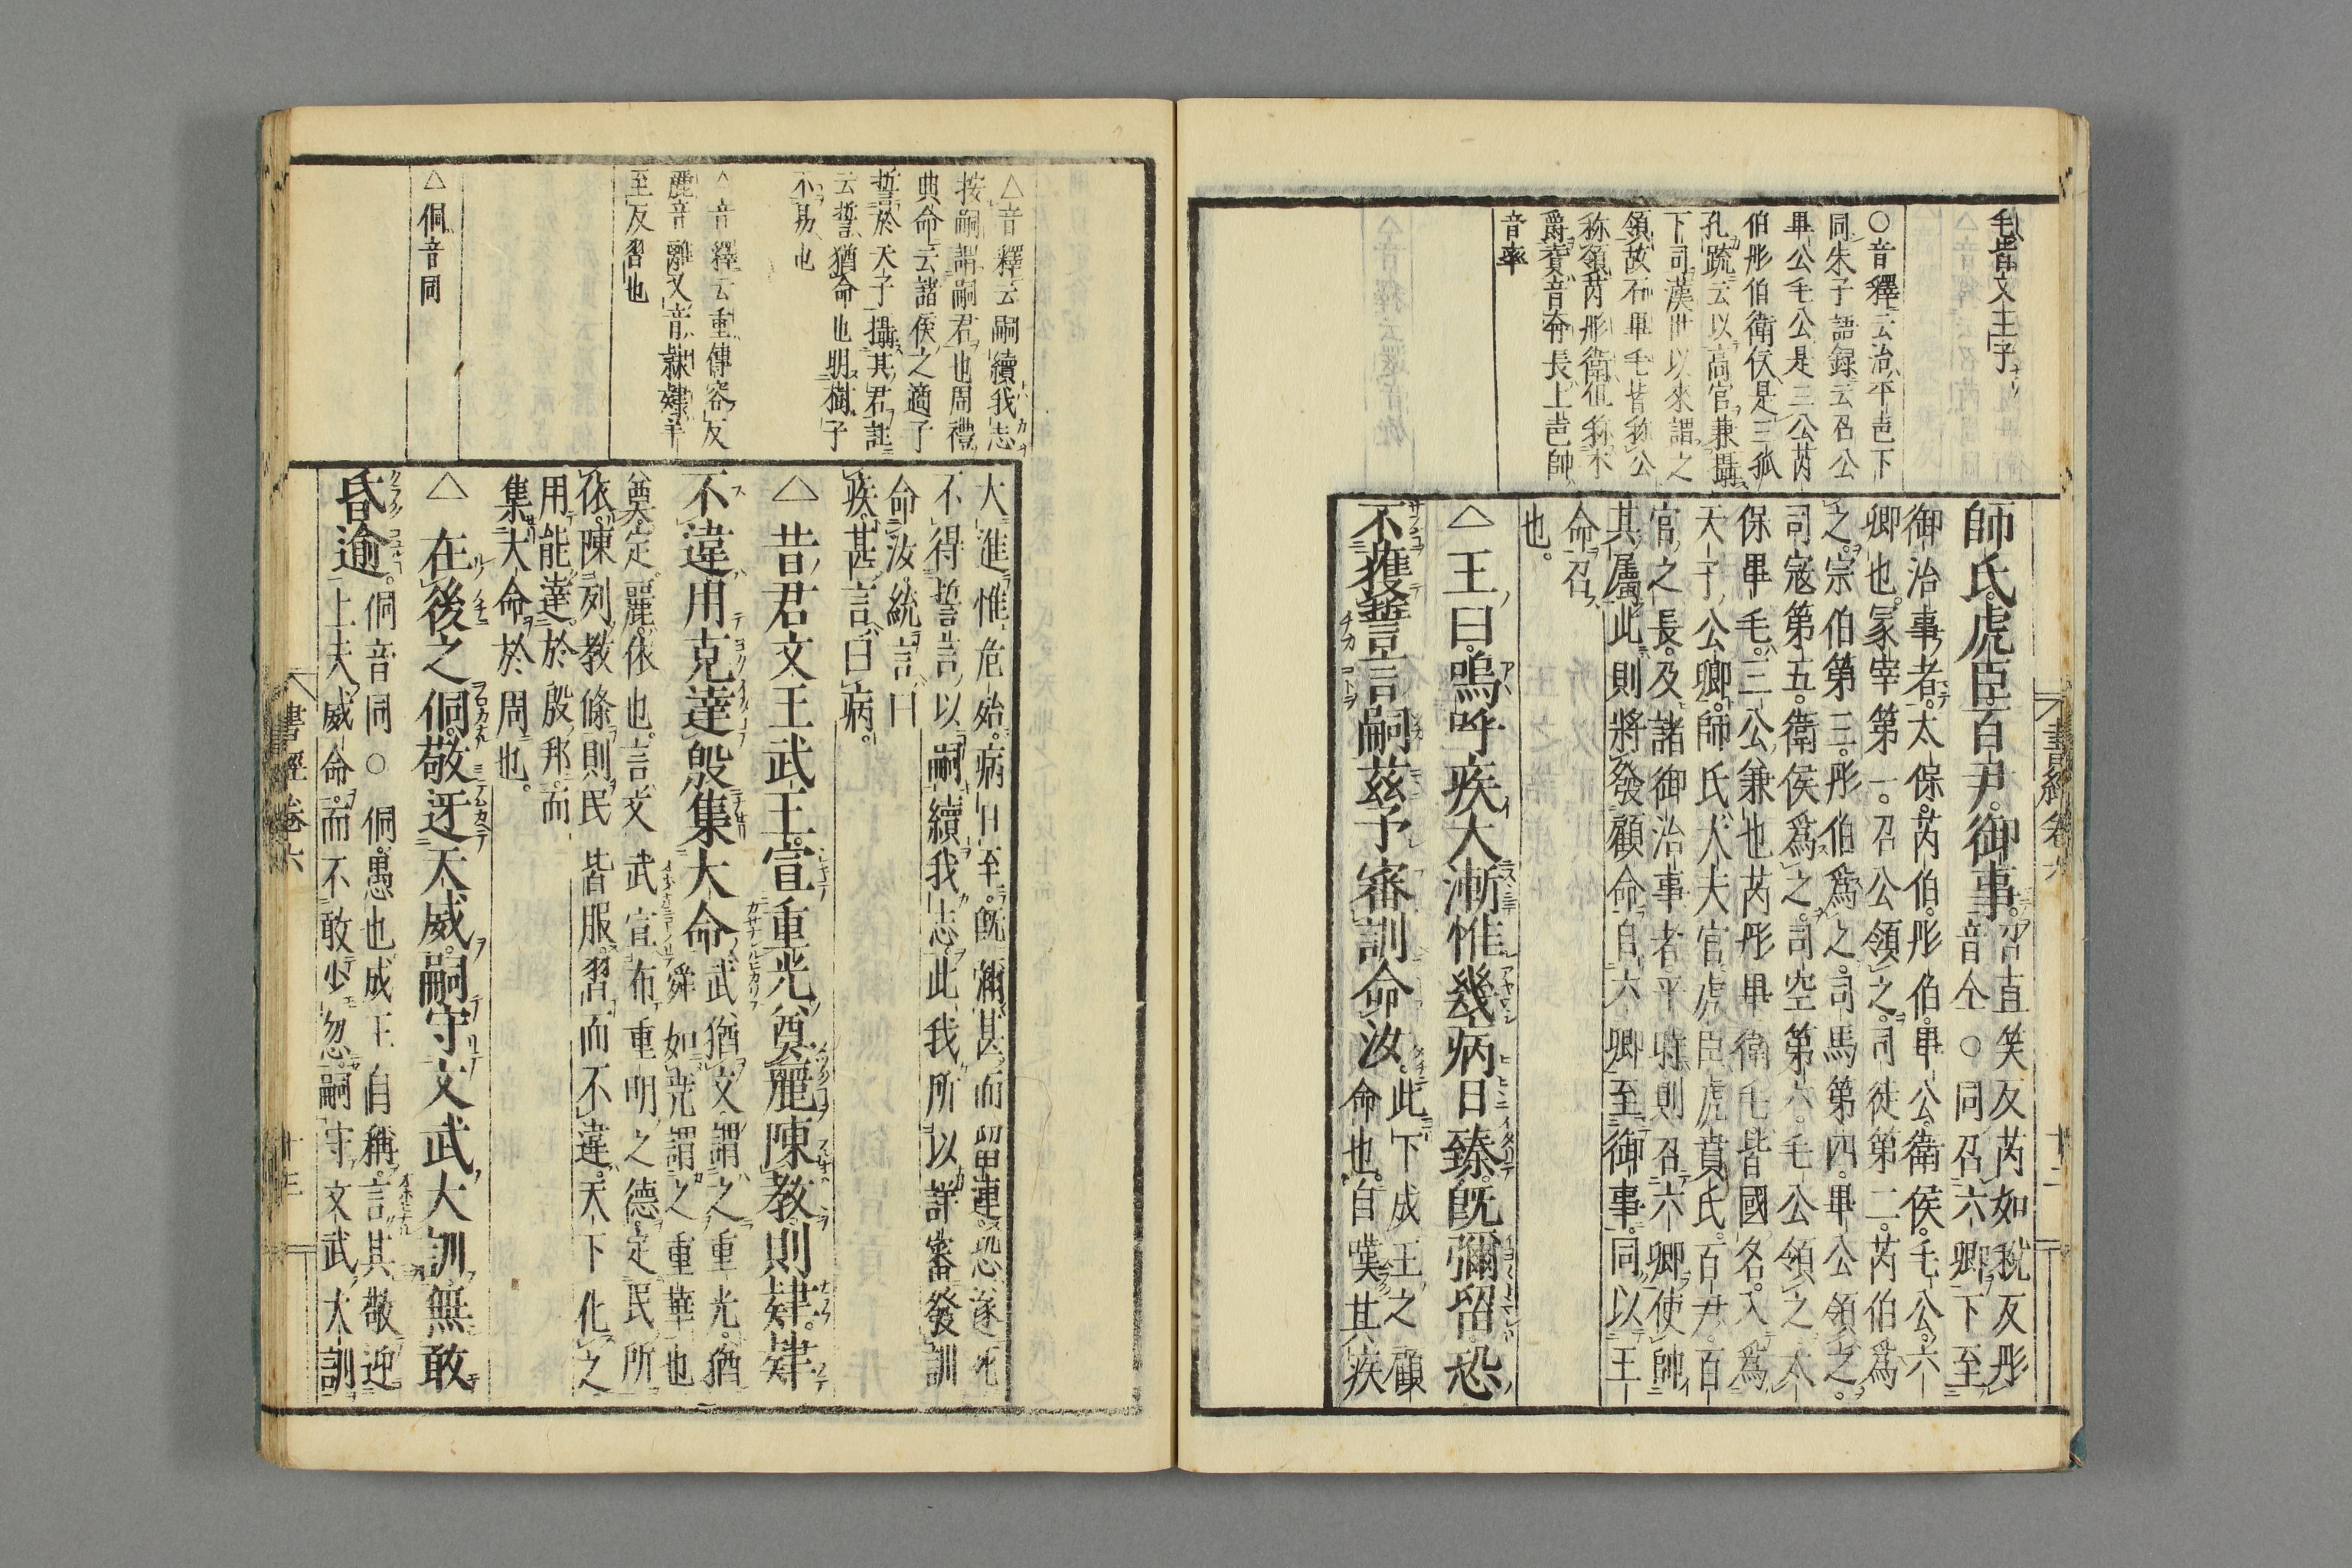 毛皆文王子
○音釋云治平声下
同朱子語録云召公
畢公毛公是三公芮
伯彤伯衛侯是三孤
孔疏云以高官兼攝
下司漢世以來謂之
領故召畢毛皆称公
称領芮彤衛伹称本
爵賁音奔長上声帥
音率
師氏虎臣百尹御事召直笑反芮如税反彤
音仝○同召六卿下至
御治事者太保芮伯彤伯畢公衛侯毛公六
卿也冢宰第一召公領之司徒第二芮伯爲
之宗伯第三彤伯爲之司馬第四畢公領之
司寇第五衛侯爲之司空第六毛公領之太
保畢毛三公兼也芮彤畢衛毛皆國名入爲
天子公卿師氏大夫官虎臣虎賁氏百尹百
官之長及諸御治事者平時則召六卿使帥
其屬此則將發顧命自六卿至御事同以王
命召
也
△王曰嗚呼疾大漸惟幾病日臻既彌留恐
不獲誓言嗣茲予審訓命汝此下成王之顧
命也自嘆其疾
書經卷六 十二
△音釋云嗣續我志
按嗣謂嗣君也周禮
典命云諸侯之適子
誓於天子攝其君註
云誓猶命也明樹子
不易也
△音釋云重傳容反
麗音離又音隸肄羊
至反習也
△侗音同
大進惟危殆病日至既彌甚而留連恐遂死
不得誓言以嗣續我志此我所以詳審發訓
命汝統言曰
疾甚言曰病
△昔君文王武王宣重光奠麗陳教則肄肄
不違用克達殷集大命武猶文謂之重光猶
舜如堯謂之重華也
奠定麗依也言文武宣布重明之德定民所
依陳列教條則民皆服習而不違天下化之
用能達於殷邦而
集大命於周也
△在後之侗敬迓天威嗣守文武大訓無敢
昏逾侗音同○侗愚也成王自稱言其敬迎
上天威命而不敢少忽嗣守文武大訓
書經卷六 十三